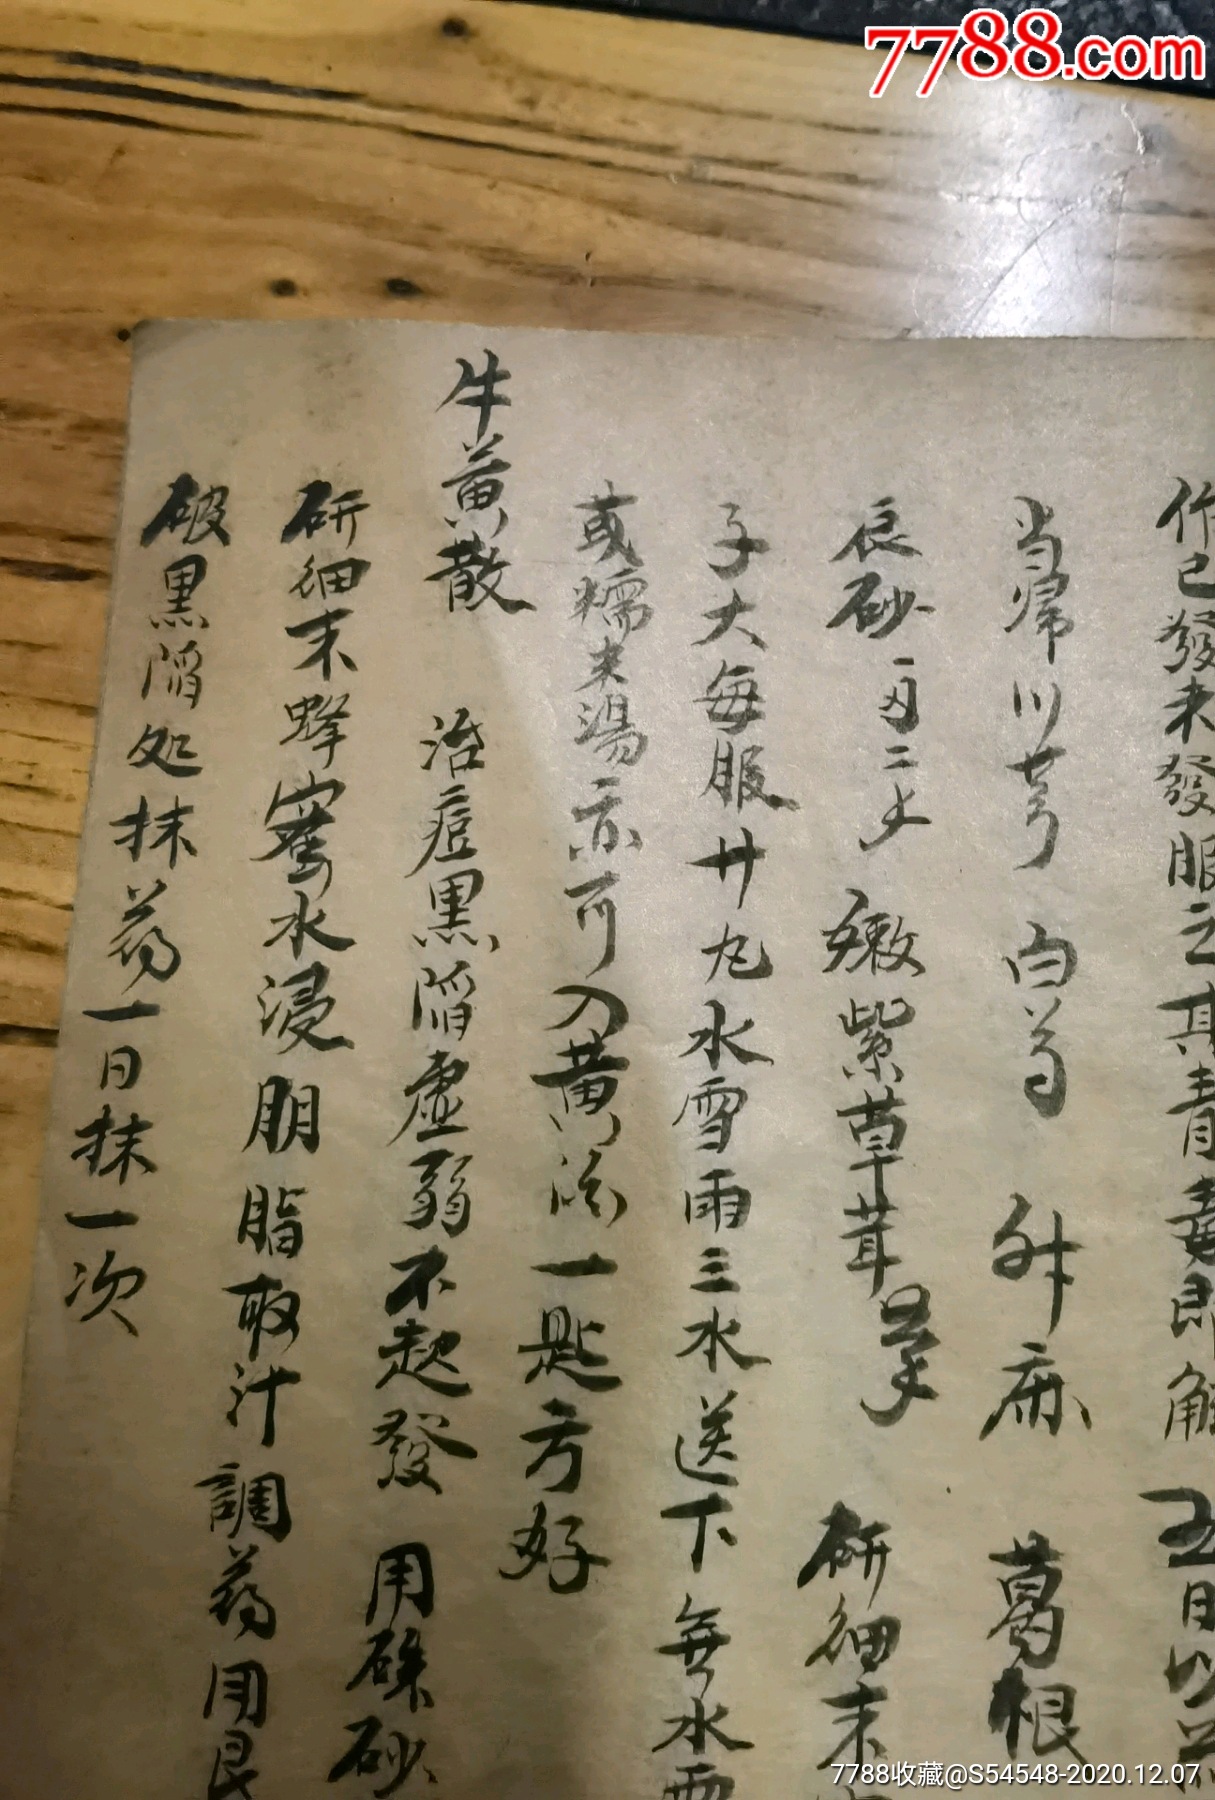 7788.com
作已發未發服之其青毒即解 五日以
当帰川芎 白芍 升麻 葛根
辰砂 二 嫩紫草茸 研細末
子大每服廿丸水雪雨三水送下無水雪
或糯米湯亦可入黄酒一匙方好
牛黄散 治痘黑陷虛弱不起發 用硃砂
研細末蜂蜜水浸胭脂取汁調药用艮
破黑陷处抹药一日抹一次
7788收藏@S54548-2020.12.07